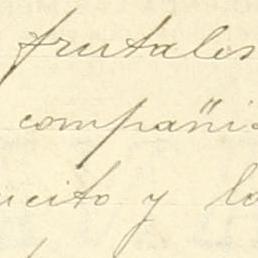 frutales
compañi
ucito y lo